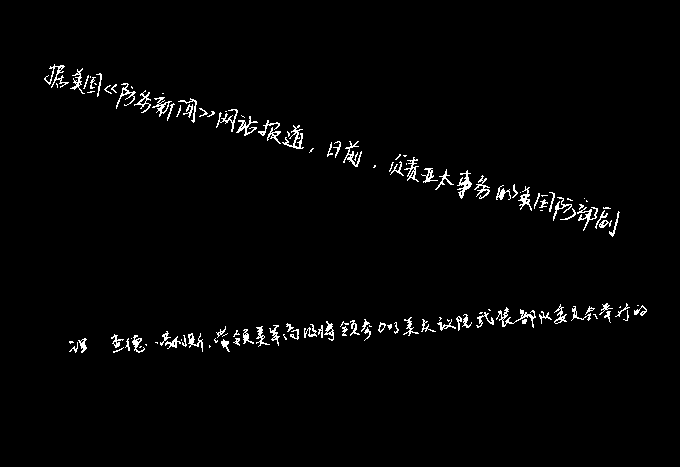 据美国《防务新闻》网站报道，日前，负责亚太事务的美国防部副
查德· 斯，带领美军高级将领参加美众议院武装部队委员会举行的